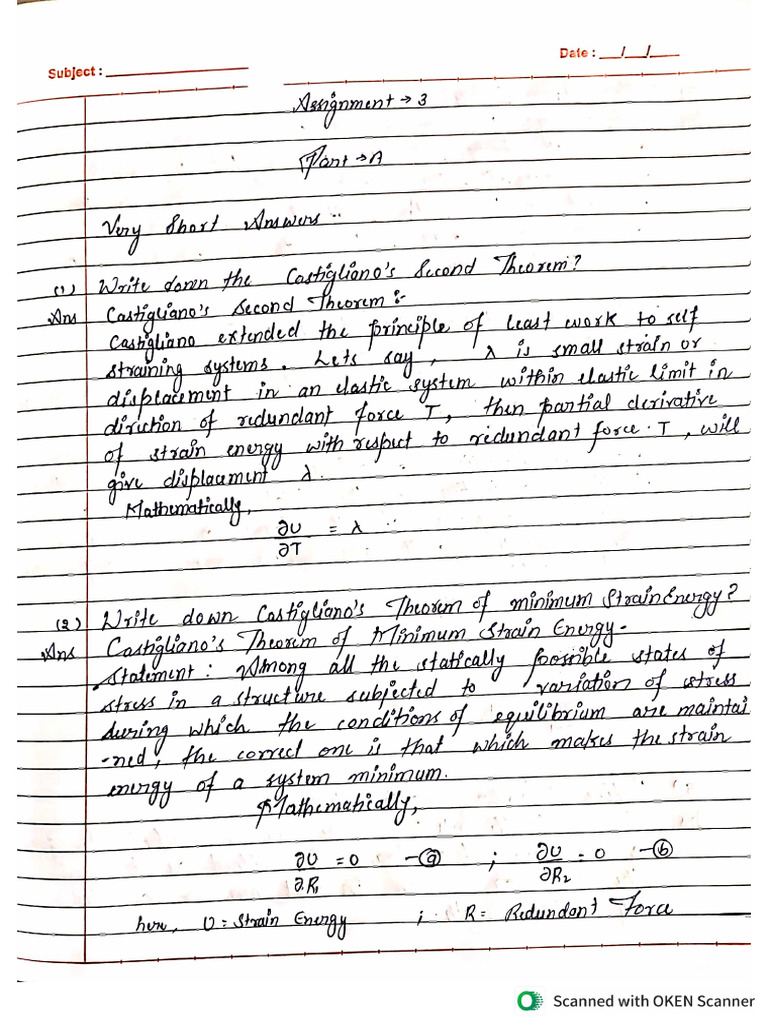 Date : __/__/___
Subject : ____________
Assignment → 3
Part → A
Very Short Answers :-
(1) Write down the Castigliano's Second Theorem?
Ans Castigliano's Second Theorem :-
Castigliano extended the principle of least work to self
straining systems. Lets say, λ is small strain or
displacement in an elastic system within elastic limit in
diriction of redundant force T, then partial derivative
of strain energy with respect to redundant force T, will
give displacement λ.
Mathematically,
∂U/∂T = λ
(2) Write down Castigliano's Theorem of minimum Strain Energy?
Ans Castigliano's Theorem of Minimum Strain Energy -
Statement : Among all the statically possible states of
stress in a structure subjected to variation of stress
during which the conditions of equilibrium are maintai
-ned, the correct one is that which makes the strain
energy of a system minimum.
Mathematically,
∂U/∂R₁ = 0 -ⓐ ; ∂U/∂R₂ = 0 -ⓑ
here, U = Strain Energy ; R = Redundant Force
Scanned with OKEN Scanner